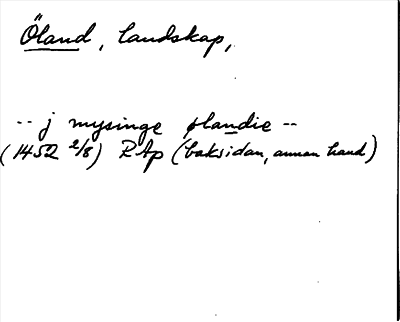 Öland, landskap,
-- j mysinge ølandie --
(1452 2/8) RAp (baksidan, annan hand)